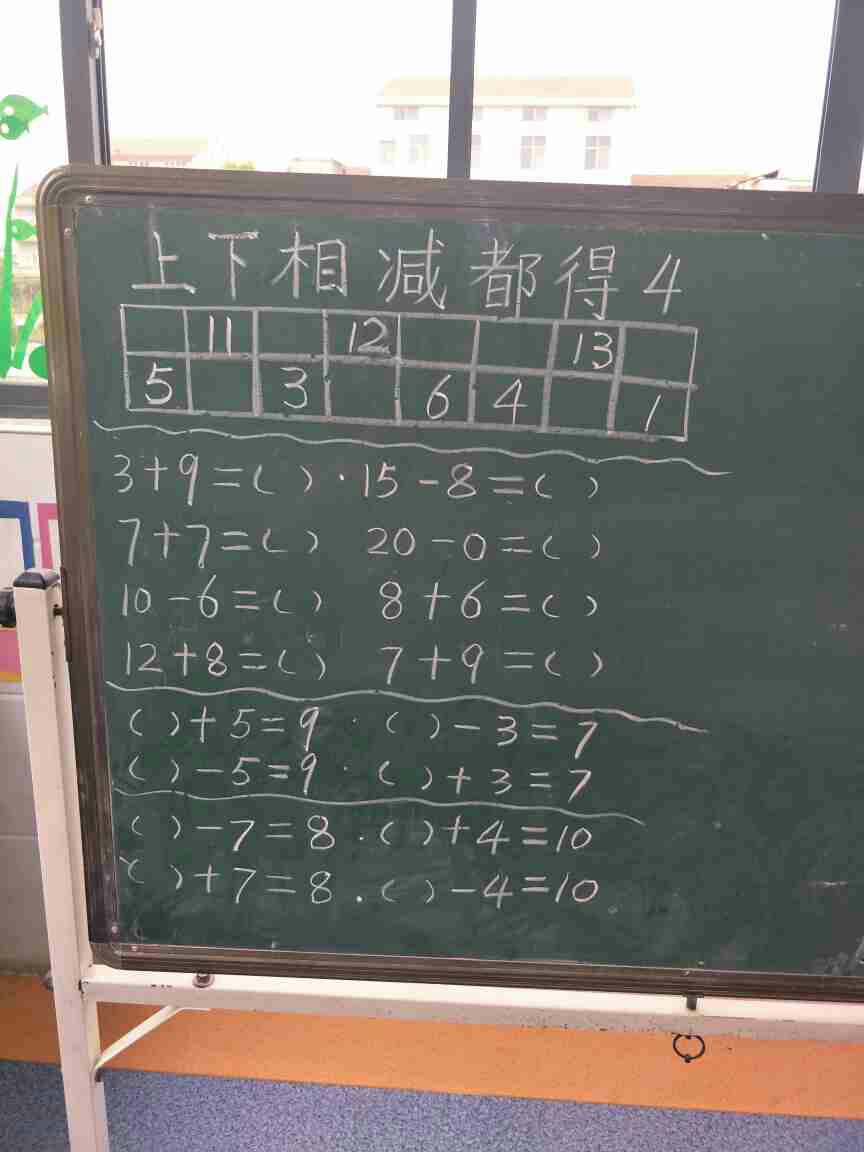 上下相减都得4
11 12 13
5 3 6 4 1
3+9=( ) · 15-8=( )
7+7=( ) 20-0=( )
10-6=( ) 8+6=( )
12+8=( ) 7+9=( )
( )+5=9 · ( )-3=7
( )-5=9 · ( )+3=7
( )-7=8 · ( )+4=10
( )+7=8 . ( )-4=10